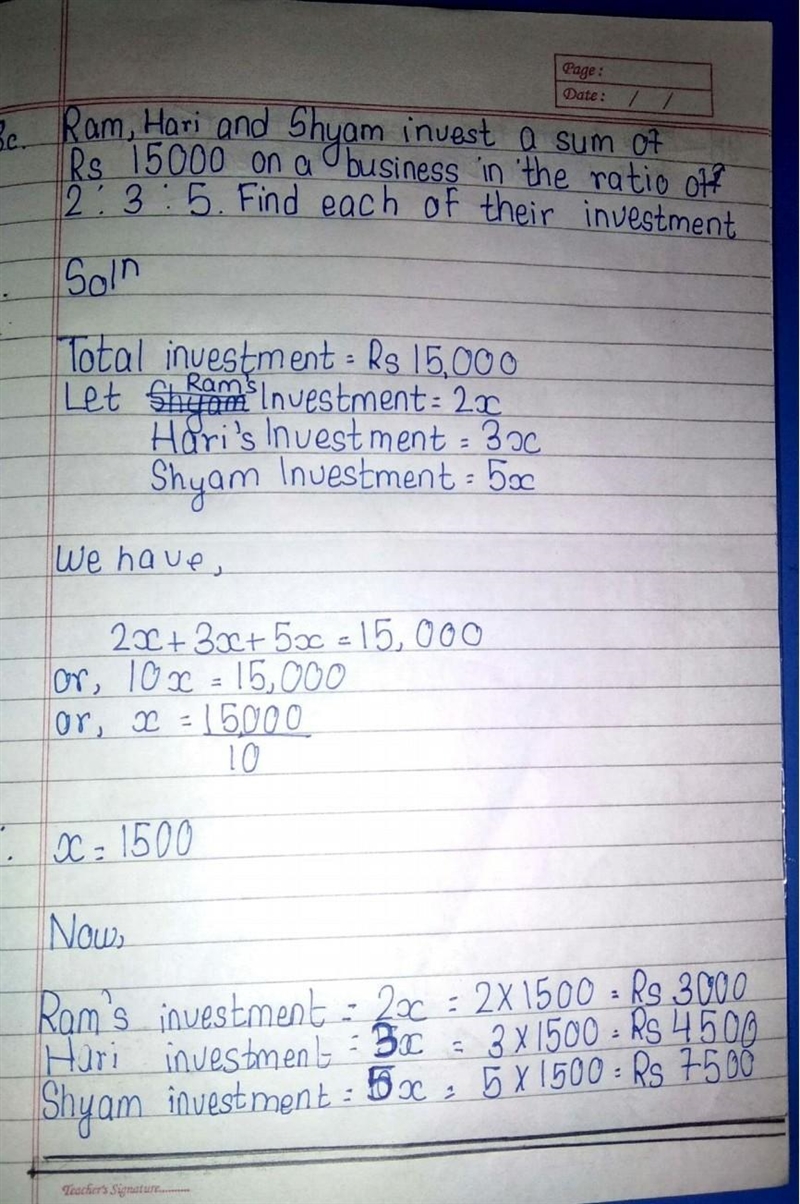 Page:
Date: / /
3c. Ram, Hari and Shyam invest a sum of
Rs 15000 on a business in the ratio of
2 : 3 : 5. Find each of their investment
Soln
Total investment = Rs 15,000
Let Shyam Ram's Investment = 2x
Hari's Investment = 3x
Shyam Investment = 5x
We have,
2x + 3x + 5x = 15,000
or, 10x = 15,000
or, x = 15,000
10
x = 1500
Now,
Ram's investment = 2x = 2 X 1500 = Rs 3000
Hari investment = 3x = 3 X 1500 = Rs 4500
Shyam investment = 5x = 5 X 1500 = Rs 7500
Teacher's Signature..........